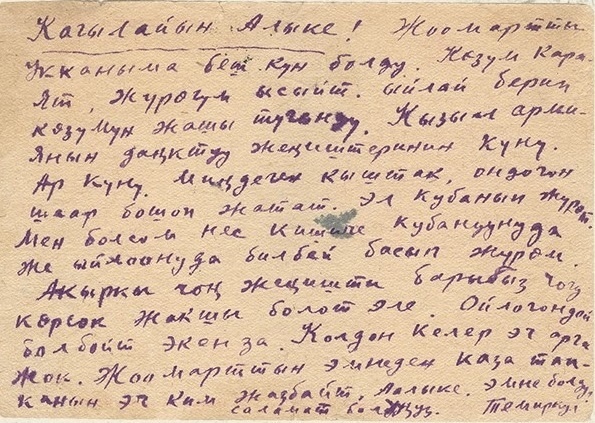 Кагылайын Алыке! Жоомартты
Укканыма беш күн болду. Көзүм кара-
ят, жүрөгүм ысыйт. ыйлай берип
көзүмүн жашы түгөндү. Кызыл арми-
янын даңктуу жеңиштеринин күнү.
Ар күнү. Миңдеген кыштак, ондогон
шаар бошоп жатат. Эл кубанып жүрөт.
Мен болсом нес кишиче кубануунуда
же ыйлоонуда билбей басып жүрөм.
Акыркы чоң жеңишти барыбыз чогу
көрсөк жакшы болот эле. Ойлогондой
болбойт экен за. Колдон келер эч арга
жок. Жоомарттын эмнеден каза тап-
канын эч ким жазбайт, Аалыке. эмне болду,
саламат болуңуз. Темиркул